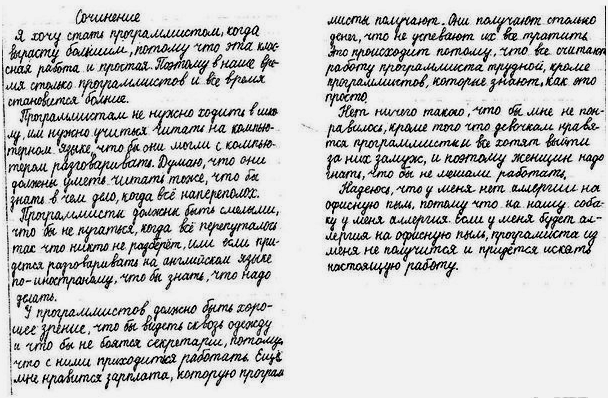 Сочинение
Я хочу стать программистом, когда
вырасту большим, потому что это клас-
сная работа и простая. Поэтому в наше вре-
мя столько программистов и все время
становится больше.
Программистам не нужно ходить в шко-
лу, им нужно учиться читать на компью-
терном языке, что бы они могли с компью-
тером разговаривать. Думаю, что они
должны уметь читать тоже, что бы
знать в чем дело, когда всё наперекосяк.
Программисты должны быть смелыми,
что бы не пугаться, когда всё перепуталось
так что никто не разберёт, или если при-
дется разговаривать на английском языке
по-иностранному, что бы знать, что надо
делать.
У программистов должно быть хоро-
шее зрение, что бы видеть сквозь одежду
и что бы не боятся секретарш, потому,
что с ними приходиться работать. Ещё
мне нравится зарплата, которую програм
мисты получают. Они получают столько
денег, что не успевают их все тратить
Это происходит потому, что все считают
работу программиста трудной, кроме
программистов, которые знают, как это
просто.
Нет ничего такого, что бы мне не пон-
равилось, кроме того что девочкам нравят-
ся программисты и все хотят выйти
за них замуж, и поэтому женщин надо
гнать, что бы не мешали работать.
Надеюсь, что у меня нет аллергии на
офисную пыль, потому что на нашу соба-
ку у меня аллергия. Если у меня будет ал-
лергия на офисную пыль, програмиста из
меня не получится и придется искать
настоящую работу.